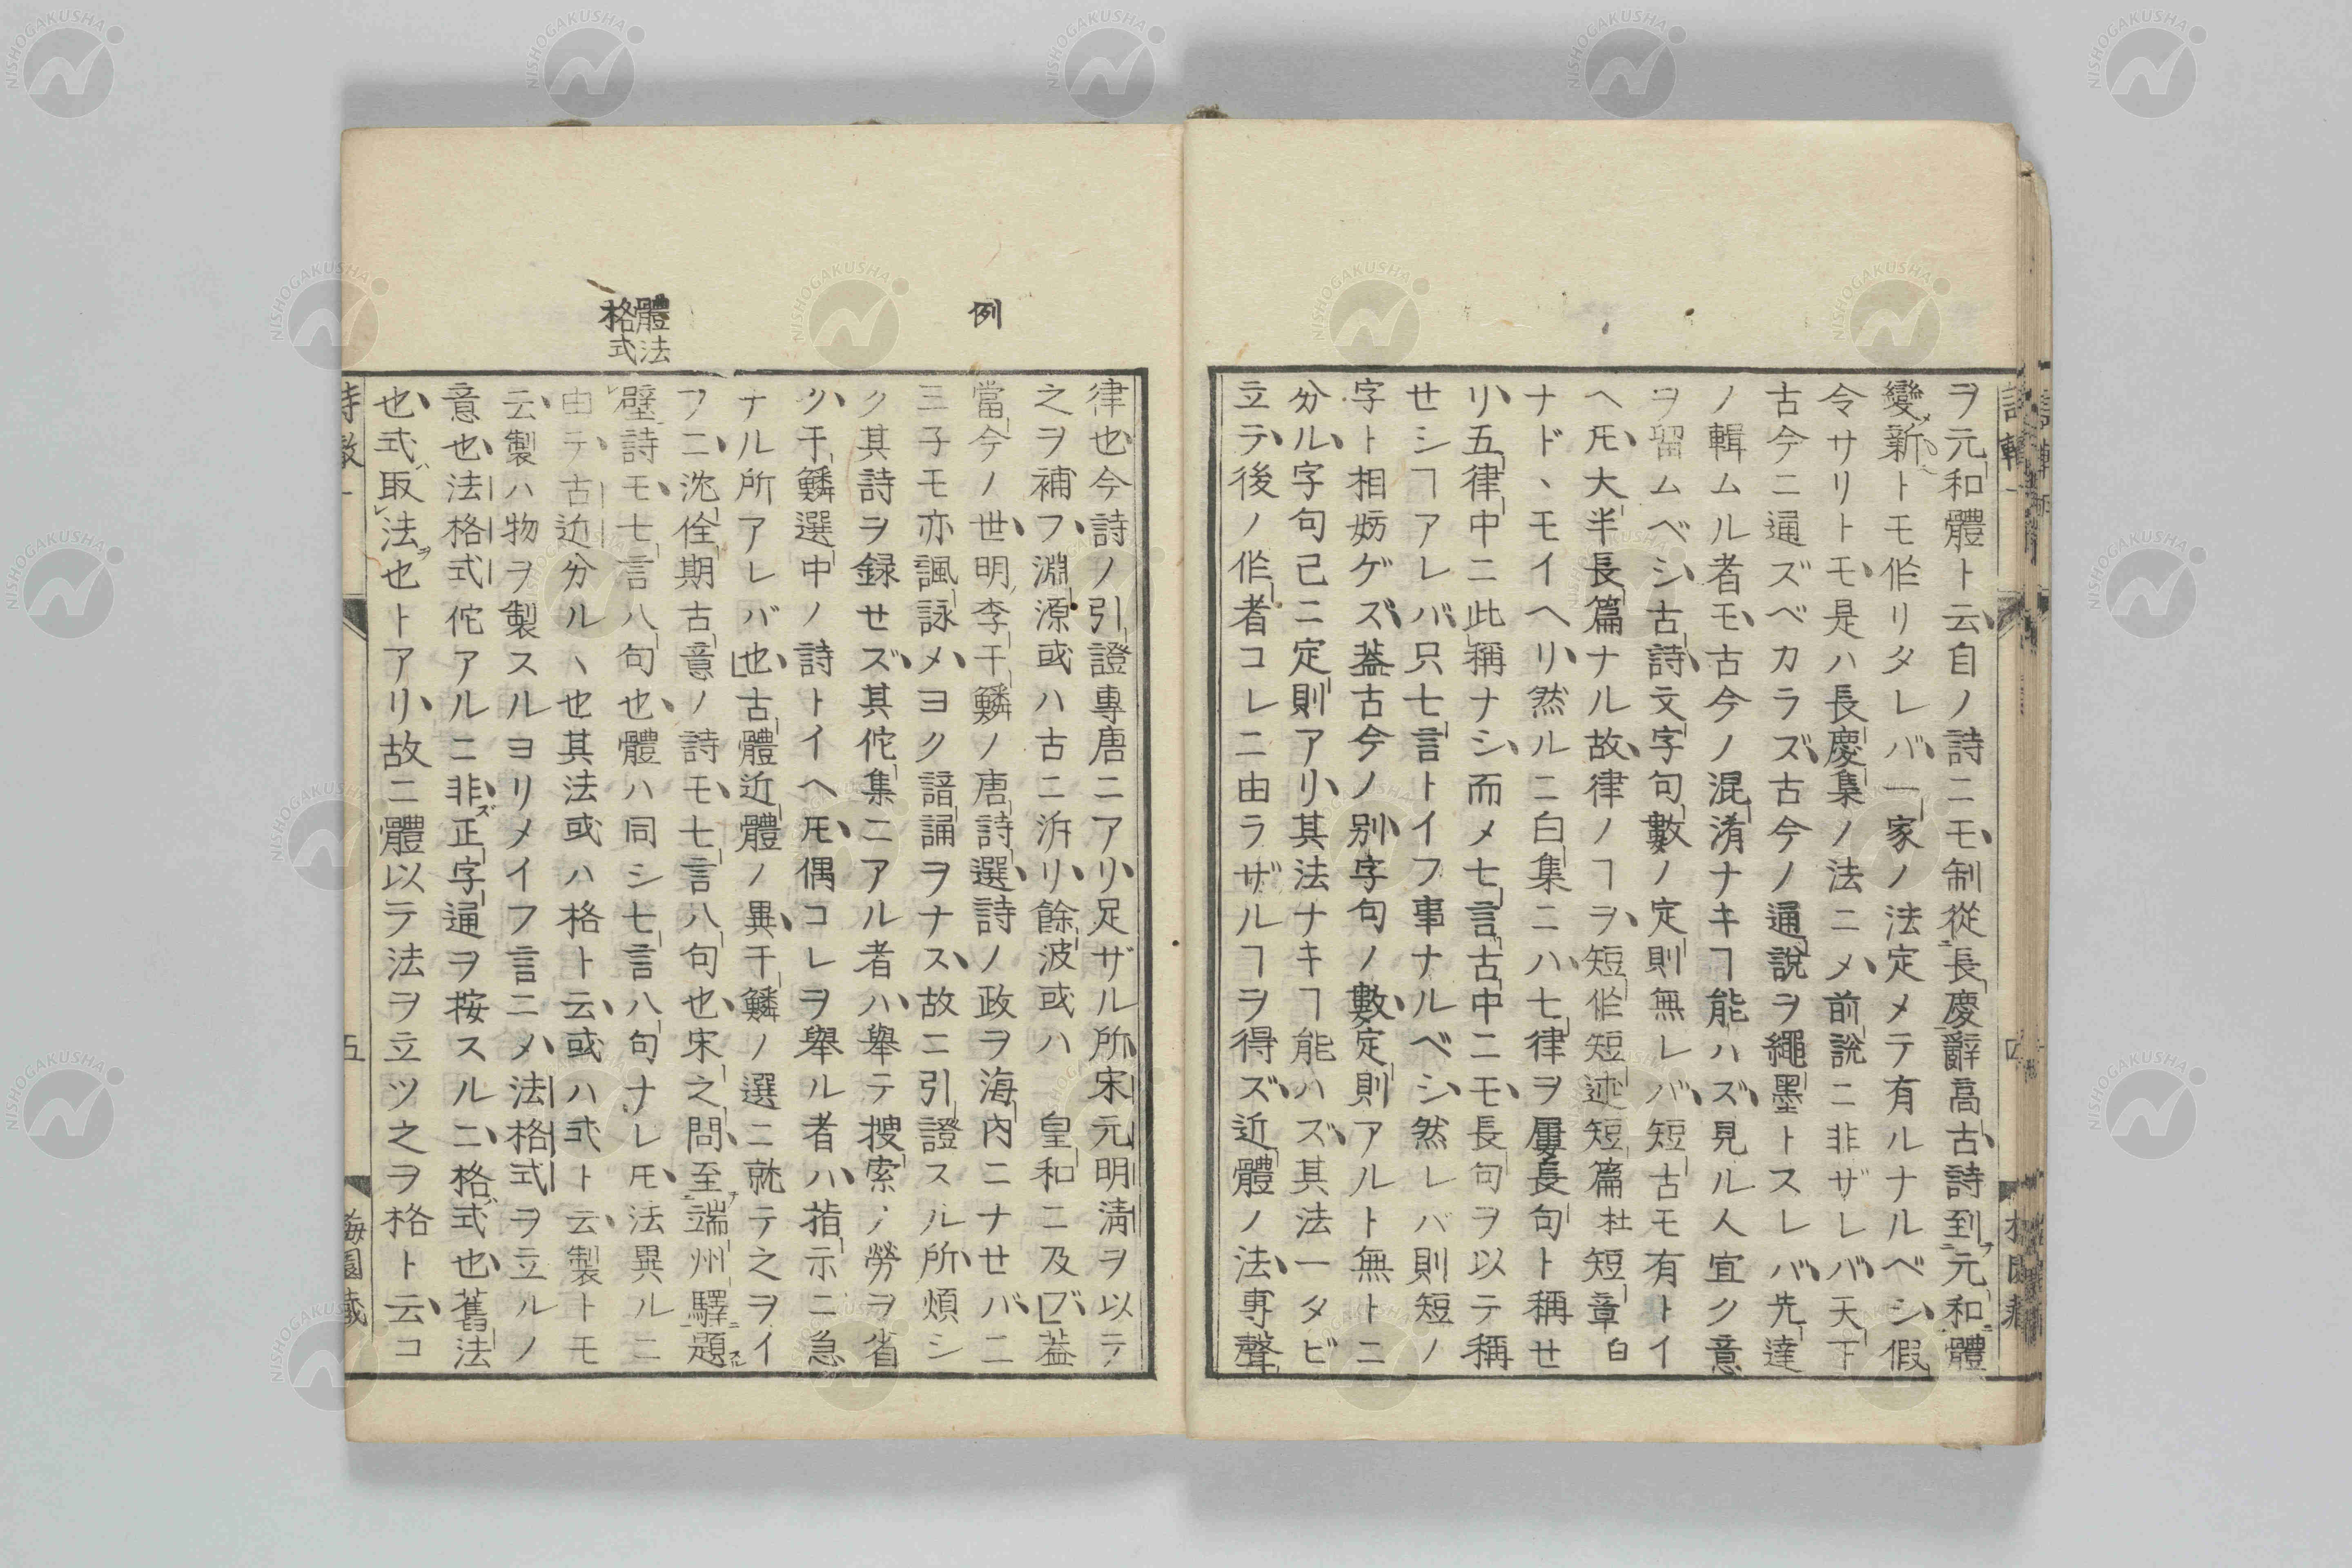 ヲ元和體ト云自ノ詩ニモ制從長慶辭高古詩到元和體
變新トモ作リタレバ一家ノ法定メテ有ルナルベシ假
令サリトモ是ハ長慶集ノ法ニメ前說ニ非ザレバ天下
古今ニ通ズベカラズ古今ノ通說ヲ繩墨トスレバ先達
ノ輯ムル者モ古今ノ混淆ナキヿ能ハズ見ル人宜ク意
ヲ留ムベシ古詩文字句數ノ定則無レバ短古モ有トイ
ヘ𪜈大半長篇ナル故律ノヿヲ短作短述短篇杜短章白
ナド、モイヘリ然ルニ白集ニハ七律ヲ屢長句ト稱セ
リ五律中ニ此稱ナシ而メ七言古中ニモ長句ヲ以テ稱
セシヿアレバ只七言トイフ事ナルベシ然レバ則短ノ
字ト相妨ゲズ葢古今ノ別字句ノ數定則アルト無トニ
分ル字句已ニ定則アリ其法ナキヿ能ハズ其法一タビ
立テ後ノ作者コレニ由ラザルヿヲ得ズ近體ノ法專聲
例
體法
格式
律也今詩ノ引證專唐ニアリ足ザル所宋元明淸ヲ以テ
之ヲ補フ淵源或ハ古ニ泝リ餘波或ハ 皇和ニ及ブ葢
當今ノ世明李于鱗ノ唐詩選詩ノ政ヲ海內ニナセバ二
三子モ亦諷詠メヨク諳誦ヲナス故ニ引證スル所煩シ
ク其詩ヲ録セズ其佗集ニアル者ハ舉テ搜索ノ勞ヲ省
ク于鱗選中ノ詩トイヘ𪜈偶コレヲ舉ル者ハ指示ニ急
ナル所アレバ也古體近體ノ異于鱗ノ選ニ就テ之ヲイ
フニ沈佺期古意ノ詩モ七言八句也宋之問至端州驛題
壁詩モ七言八句也體ハ同シ七言八句ナレ𪜈法異ルニ
由テ古近分ルヽ也其法或ハ格ト云或ハ式ト云製トモ
云製ハ物ヲ製スルヨリメイフ言ニメ法格式ヲ立ルノ
意也法格式佗アルニ非ズ正字通ヲ按スルニ格式也舊法
也式取法也トアリ故ニ體以テ法ヲ立ツ之ヲ格ト云コ
五